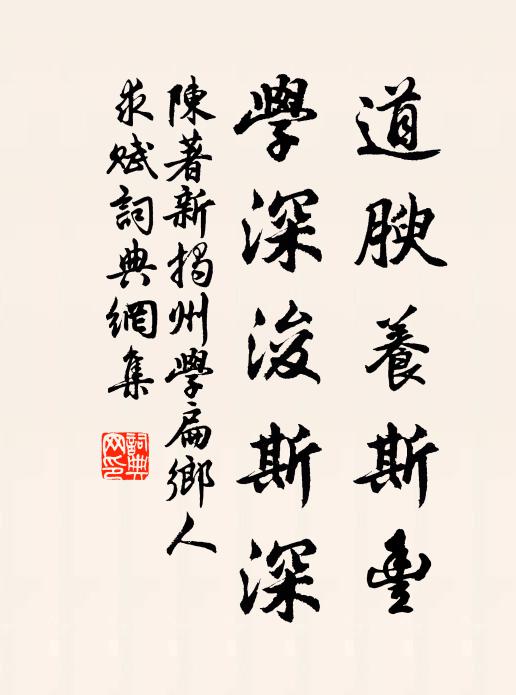 道腴養斯豐
學深浚斯深
陳著新揭州學扁鄉人
求賦詞典網集
詞典網印